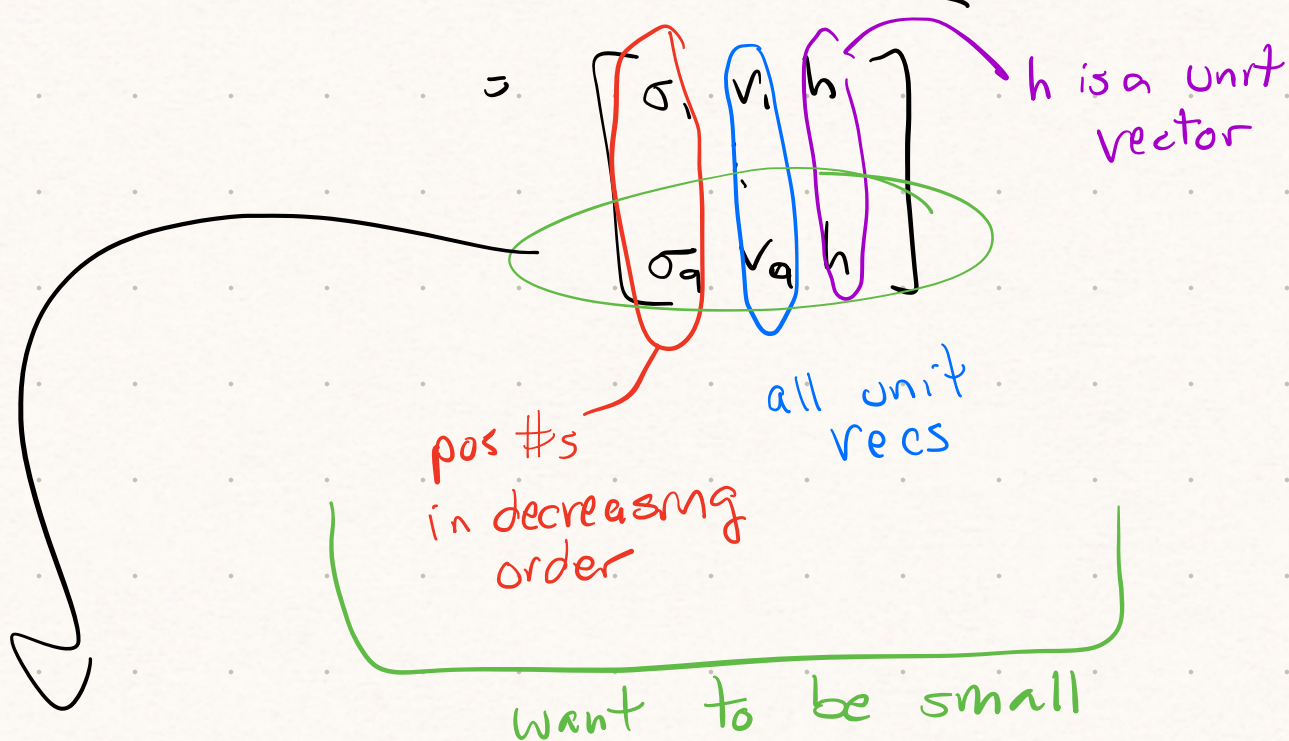 = [ σ₁ v₁ h ]
⋮
[ σ₉ v₉ h ]
h is a unit
vector
all unit
vecs
pos #s
in decreasing
order
want to be small